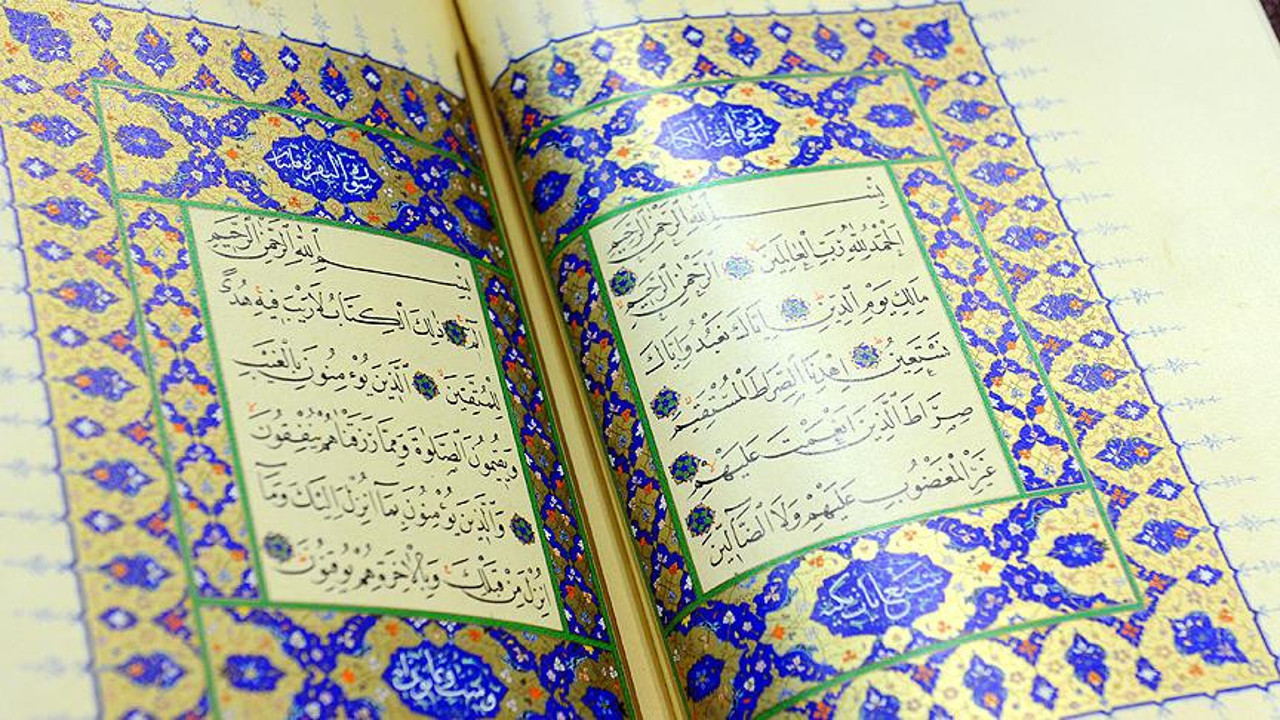 سورة فاتحة الكتاب
بسم الله الرحمن الرحيم
الحمد لله رب العالمين الرحمن الرحيم
مالك يوم الدين اياك نعبد واياك
نستعين اهدنا الصراط المستقيم
صراط الذين انعمت عليهم
غير المغضوب عليهم ولا الضالين
سبع ايات مكية
سورة البقرة مائتا
بسم الله الرحمن الرحيم
الم ذلك الكتاب لا ريب فيه هدى
للمتقين الذين يؤمنون بالغيب
ويقيمون الصلوة ومما رزقناهم ينفقون
والذين يؤمنون بما انزل اليك وما
انزل من قبلك وبالآخرة هم يوقنون